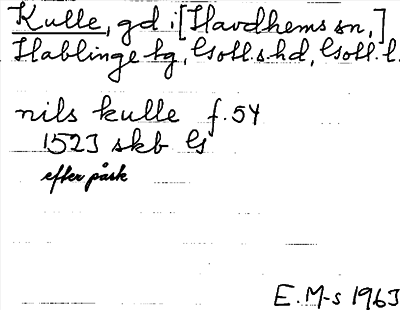 Kulle, gd i [Havdhems sn,]
Hablinge tg, Gotl.s.hd, Gotl.l.
nils kulle f.54
1523 skb G
efter påsk
E.M-s 1963